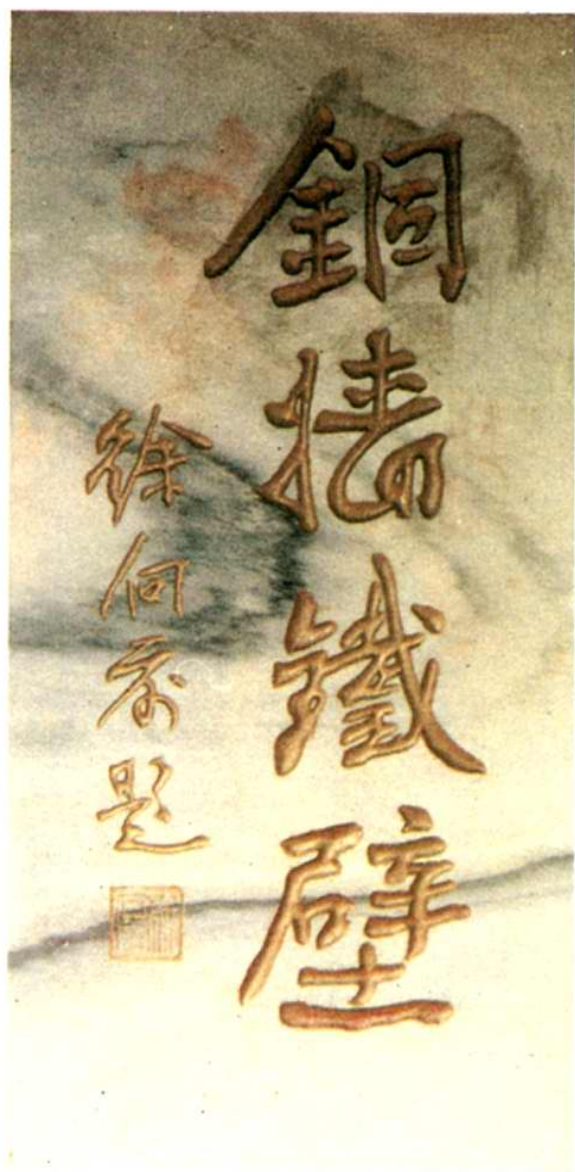 銅牆鐵壁
徐向前題